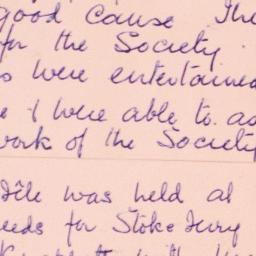 good cause The
for the Society.
were entertained
& were able to as
work of the Society
was held at
for Stoke Ferry